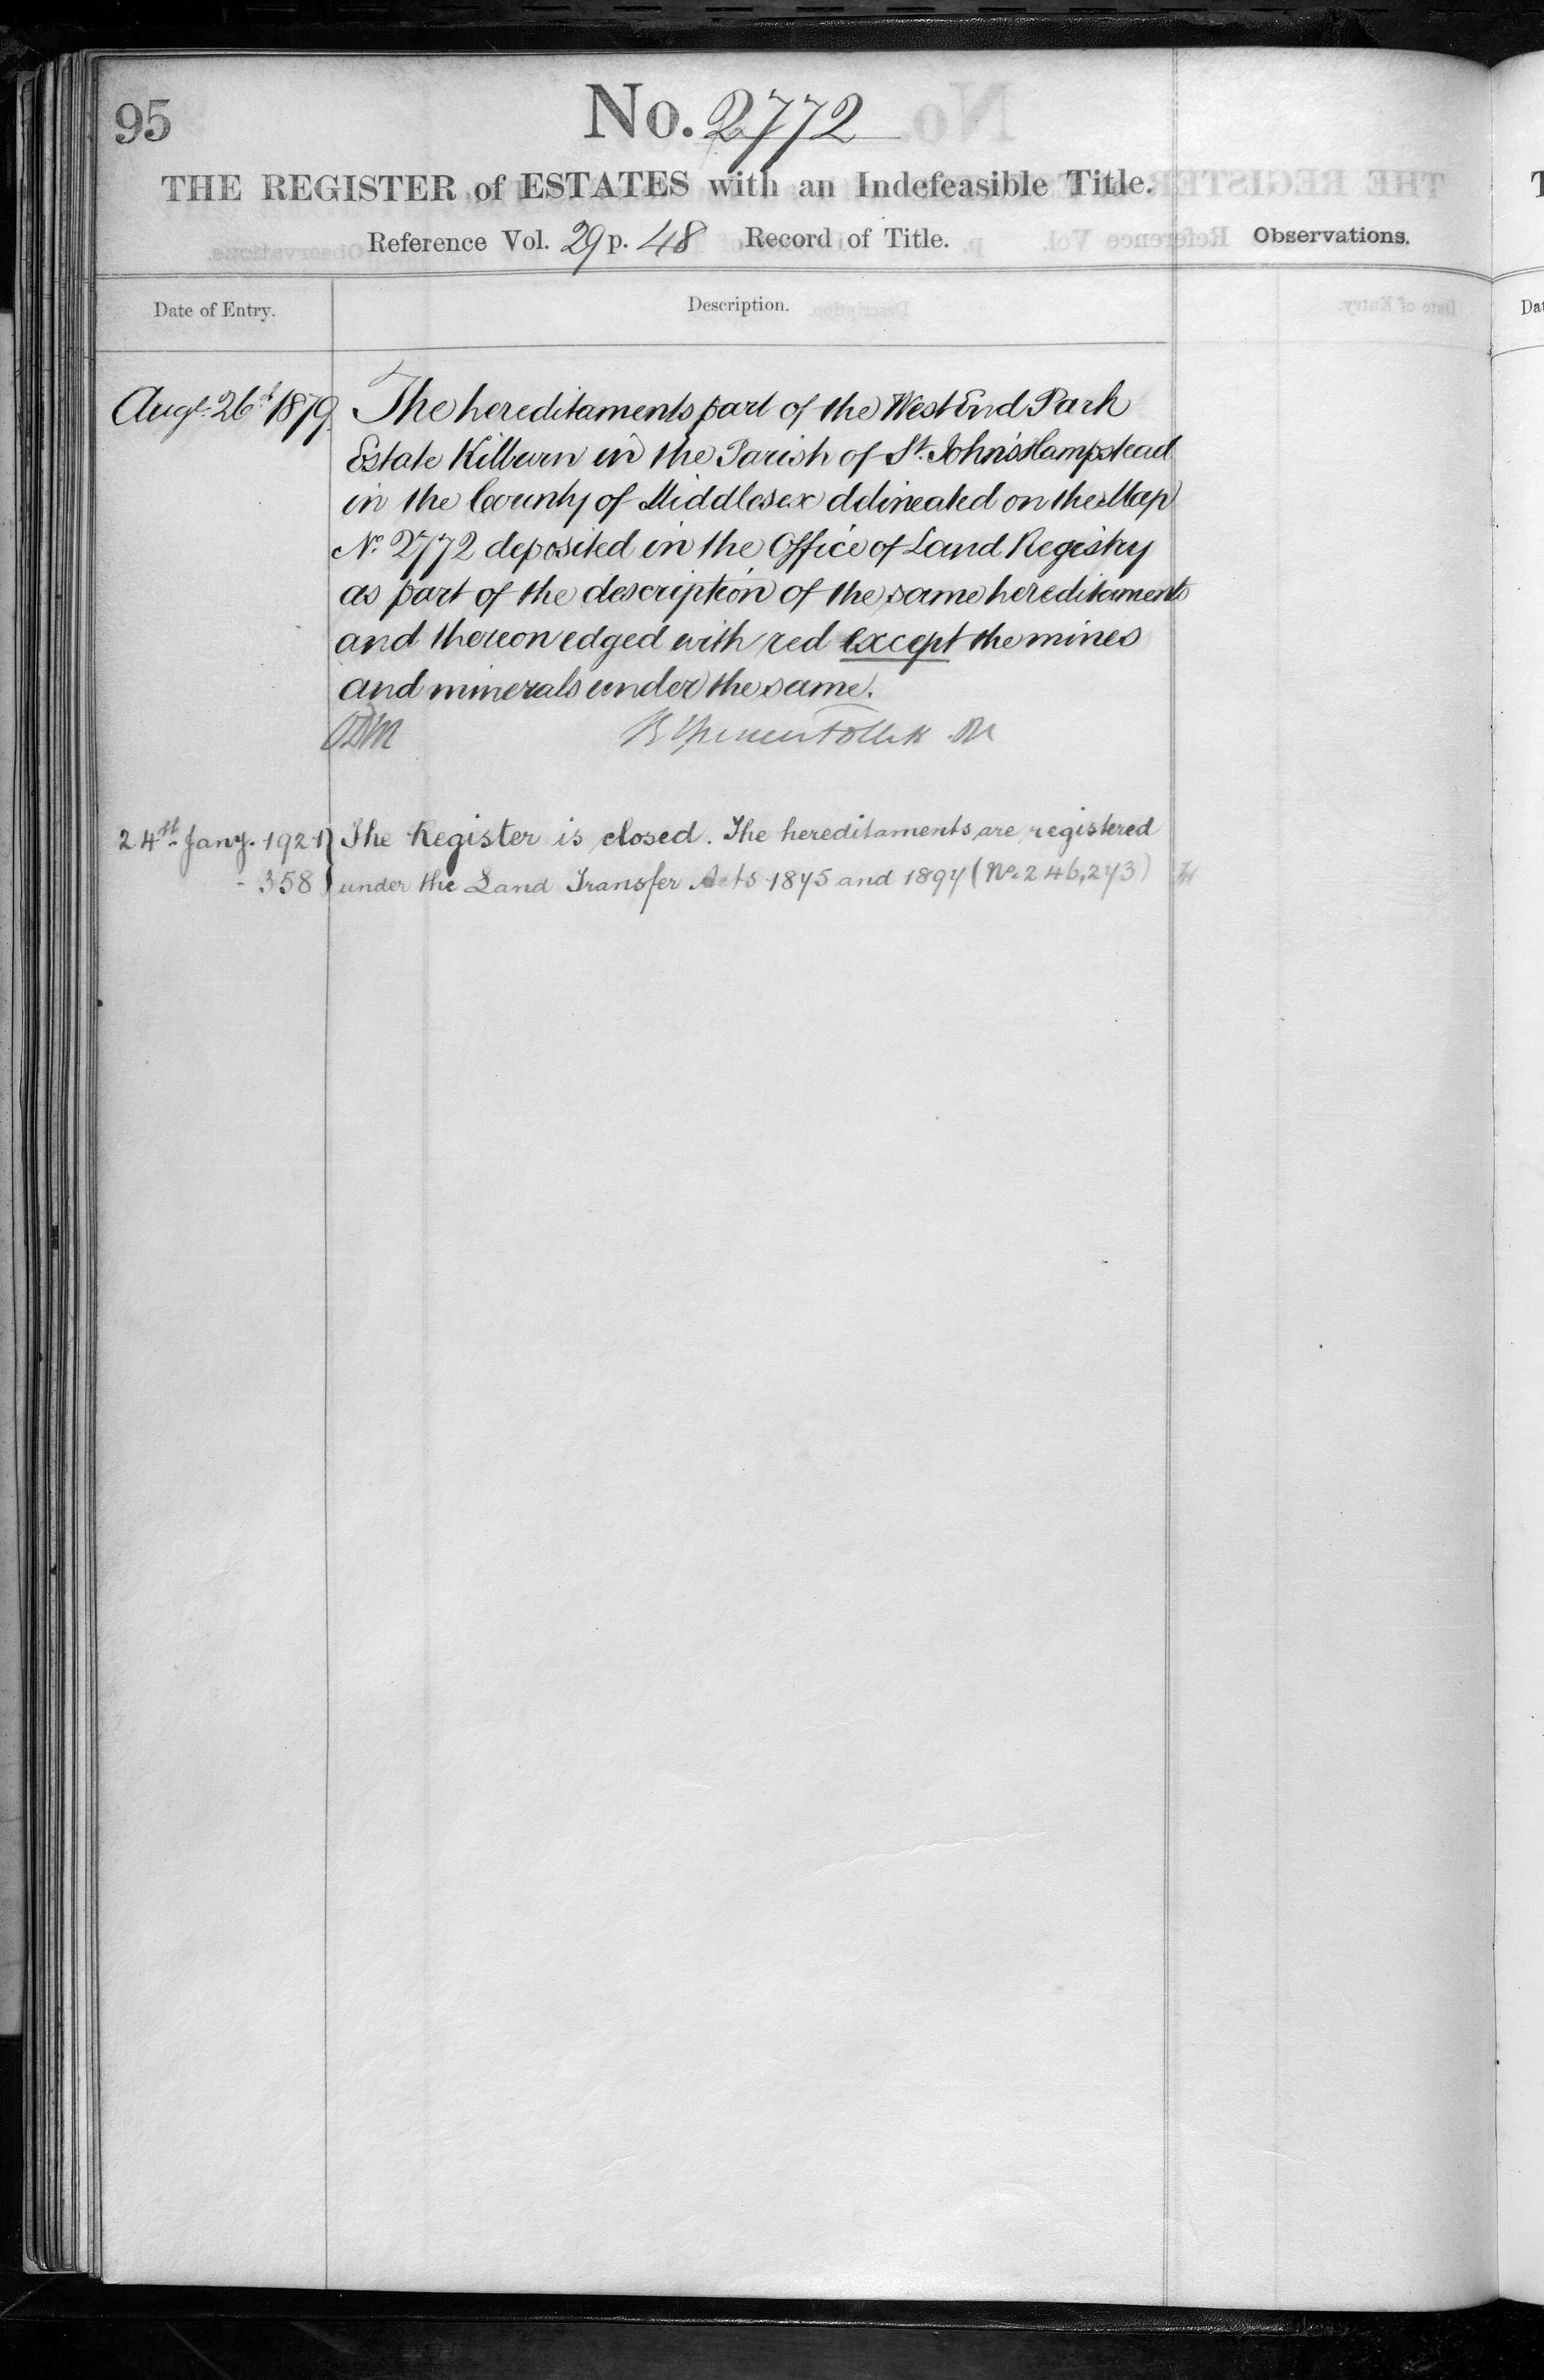 95
No. 2772
THE REGISTER of ESTATES with an Indefeasible Title.
Reference Vol. 29 p. 48 Record of Title.
Observations.
Date of Entry.
Description.
Augt. 26th 1879. The hereditaments part of the West End Park
Estate Kilburn in the Parish of St. John's Hampstead
in the County of Middlesex delineated on the Map
No. 2772 deposited in the Office of Land Registry
as part of the description of the same hereditaments
and thereon edged with red except the mines
and minerals under the same.
24th. Jany. 1921 } The Register is closed. The hereditaments are registered
- 358 } under the Land Transfer Acts 1875 and 1897 (No. 246,273)